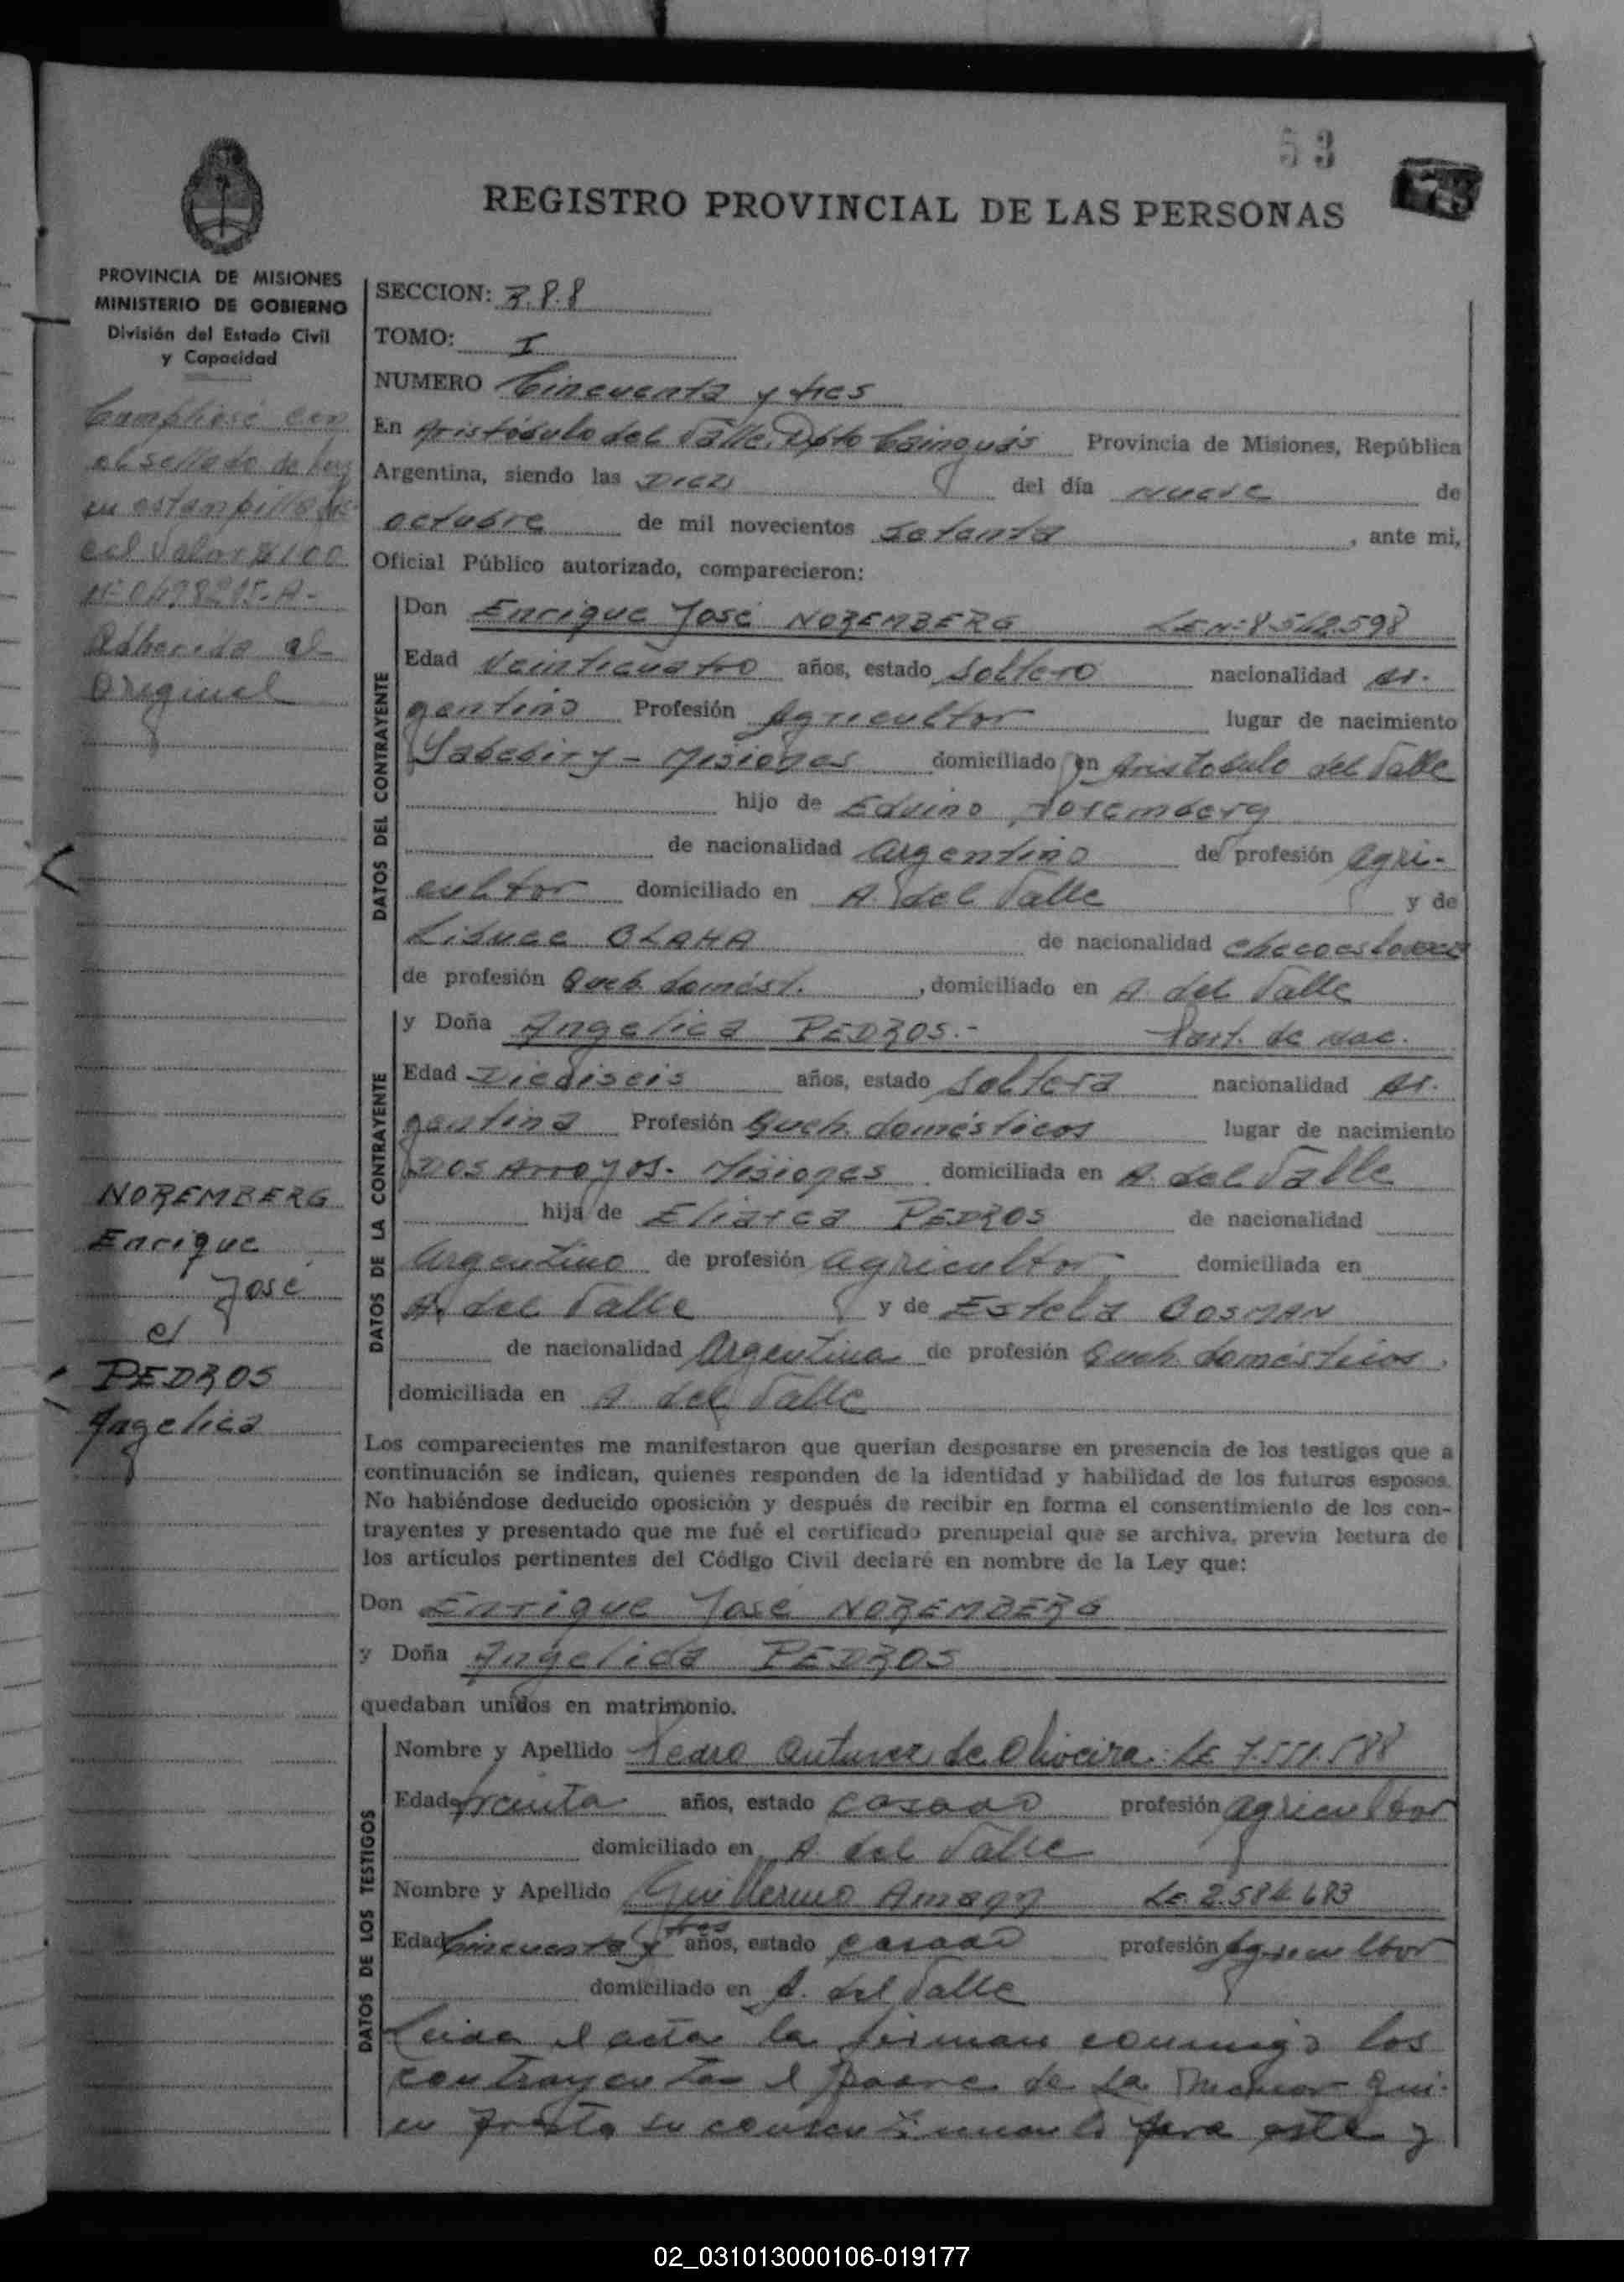 53
REGISTRO PROVINCIAL DE LAS PERSONAS
PROVINCIA DE MISIONES
MINISTERIO DE GOBIERNO
División del Estado Civil
y Capacidad
Cumplióse con
el sellado de ley
en estampilla de
el valor $100
Nº 0498215-A-
Adherida al
Original
NOREMBERG
Enrique
José
c/
PEDROS
Angelica
SECCION: R.P.8
TOMO: I
NUMERO Cincuenta y tres
En Aristóbulo del Valle, Dpto Cainguás Provincia de Misiones, República
Argentina, siendo las Diez del día nueve de
octubre de mil novecientos setenta, ante mi,
Oficial Público autorizado, comparecieron:
DATOS DEL CONTRAYENTE
Don Enrique José NOREMBERG LENº 8542.598
Edad Veinticuatro años, estado Soltero nacionalidad Ar-
gentino Profesión Agricultor lugar de nacimiento
Yabebiry - Misiones domiciliado en Aristobulo del Valle
hijo de Eduino Noremberg
de nacionalidad Argentino de profesión Agri-
cultor domiciliado en A. del Valle y de
Libuce BLAHA de nacionalidad checoeslovaca
de profesión Queh. domést., domiciliado en A. del Valle
DATOS DE LA CONTRAYENTE
y Doña Angelica PEDROS.- Part. de nac.
Edad Dieciseis años, estado Soltera nacionalidad Ar-
gentina Profesión Queh. domésticos lugar de nacimiento
Dos Arroyos. Misiones domiciliada en A. del Valle
hija de PEDROS de nacionalidad
Argentino de profesión agricultor domiciliada en
A. del Valle y de Estela BOSMAN
de nacionalidad Argentina de profesión Queh. domésticos.
domiciliada en A. del Valle
Los comparecientes me manifestaron que querian desposarse en presencia de los testigos que a
continuación se indican, quienes responden de la identidad y habilidad de los futuros esposos.
No habiéndose deducido oposición y después de recibir en forma el consentimiento de los con-
trayentes y presentado que me fué el certificado prenupcial que se archiva, previa lectura de
los artículos pertinentes del Código Civil declaré en nombre de la Ley que:
Don Enrique José NOREMBERG
y Doña Angelica PEDROS
quedaban unidos en matrimonio.
DATOS DE LOS TESTIGOS
Nombre y Apellido Pedro Antunez de Oliveira. LE 7.551.588
Edad treinta años, estado casado profesión agricultor
domiciliado en A. del Valle
Nombre y Apellido Guillermo Amann LE. 2.584.683
Edad Cincuenta y tres años, estado casado profesión Agricultor
domiciliado en A. del Valle
Leida el acta la firman conmigo los
contrayentes el padre de la menor qui-
en presta su consentimiento para este y
02_031013000106-019177